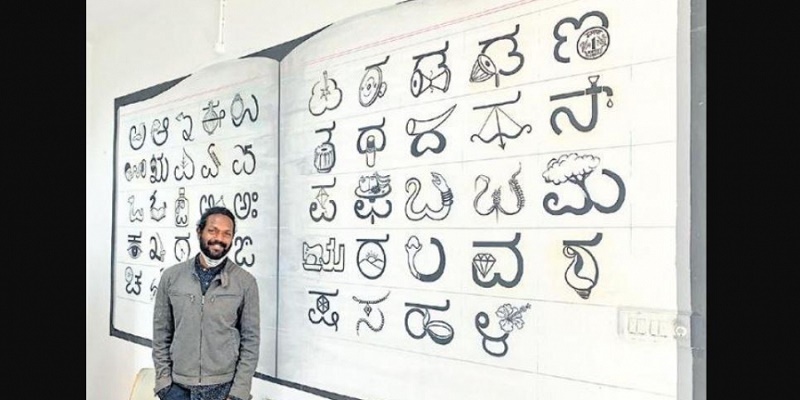 ಅ ಆ ಇ ಈ ಉ
ಊ ಋ ಎ ಏ ಐ
ಒ ಓ ಔ ಅಂ ಅಃ
ಕ ಖ ಗ ಙ
ಚ
ಟ ಠ ಡ ಢ ಣ
ತ ಥ ದ ಧ ನ
ಪ ಫ ಬ ಭ ಮ
ಯ ರ ಲ ವ ಶ
ಷ ಸ ಹ ಳ